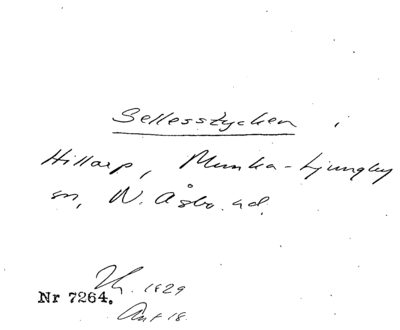 Sellesstycken
Hillarp, Munka-Ljungby
sn, N. Åsbo hd.
1829
Nr 7264.
Ant 18.